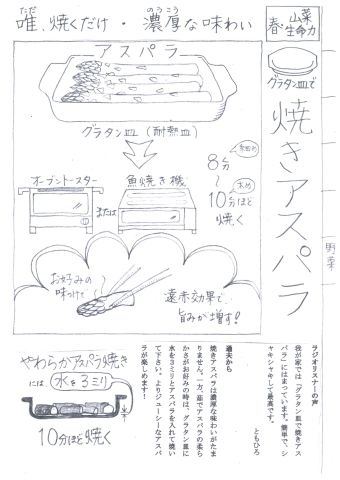 唯、焼くだけ・濃厚な味わい
ただ
のうこう
春・山菜
生命力
グラタン皿で
焼きアスパラ
野菜
アスパラ
グラタン皿(耐熱皿)
オーブントースター
または
魚焼き機
8分
〜
太め
10分ほど
焼く
お好みの
味つけで
遠赤効果で、
旨みが増す!
やわらかアスパラ焼き
には
水を3ミリ
10分ほど焼く
ラジオリスナーの声
我が家では「グラタン皿で焼きアス
パラ」にはまっています。簡単で、シ
ャキシャキして最高です。
ともひろ
道夫から
焼きアスパラは濃厚な味わいがたま
りません。一方、茹でアスパラの柔ら
かさがお好みの時は、グラタン皿に
水を3ミリとアスパラを入れて焼い
て下さい。よりジューシーなアスパ
ラが楽しめます!